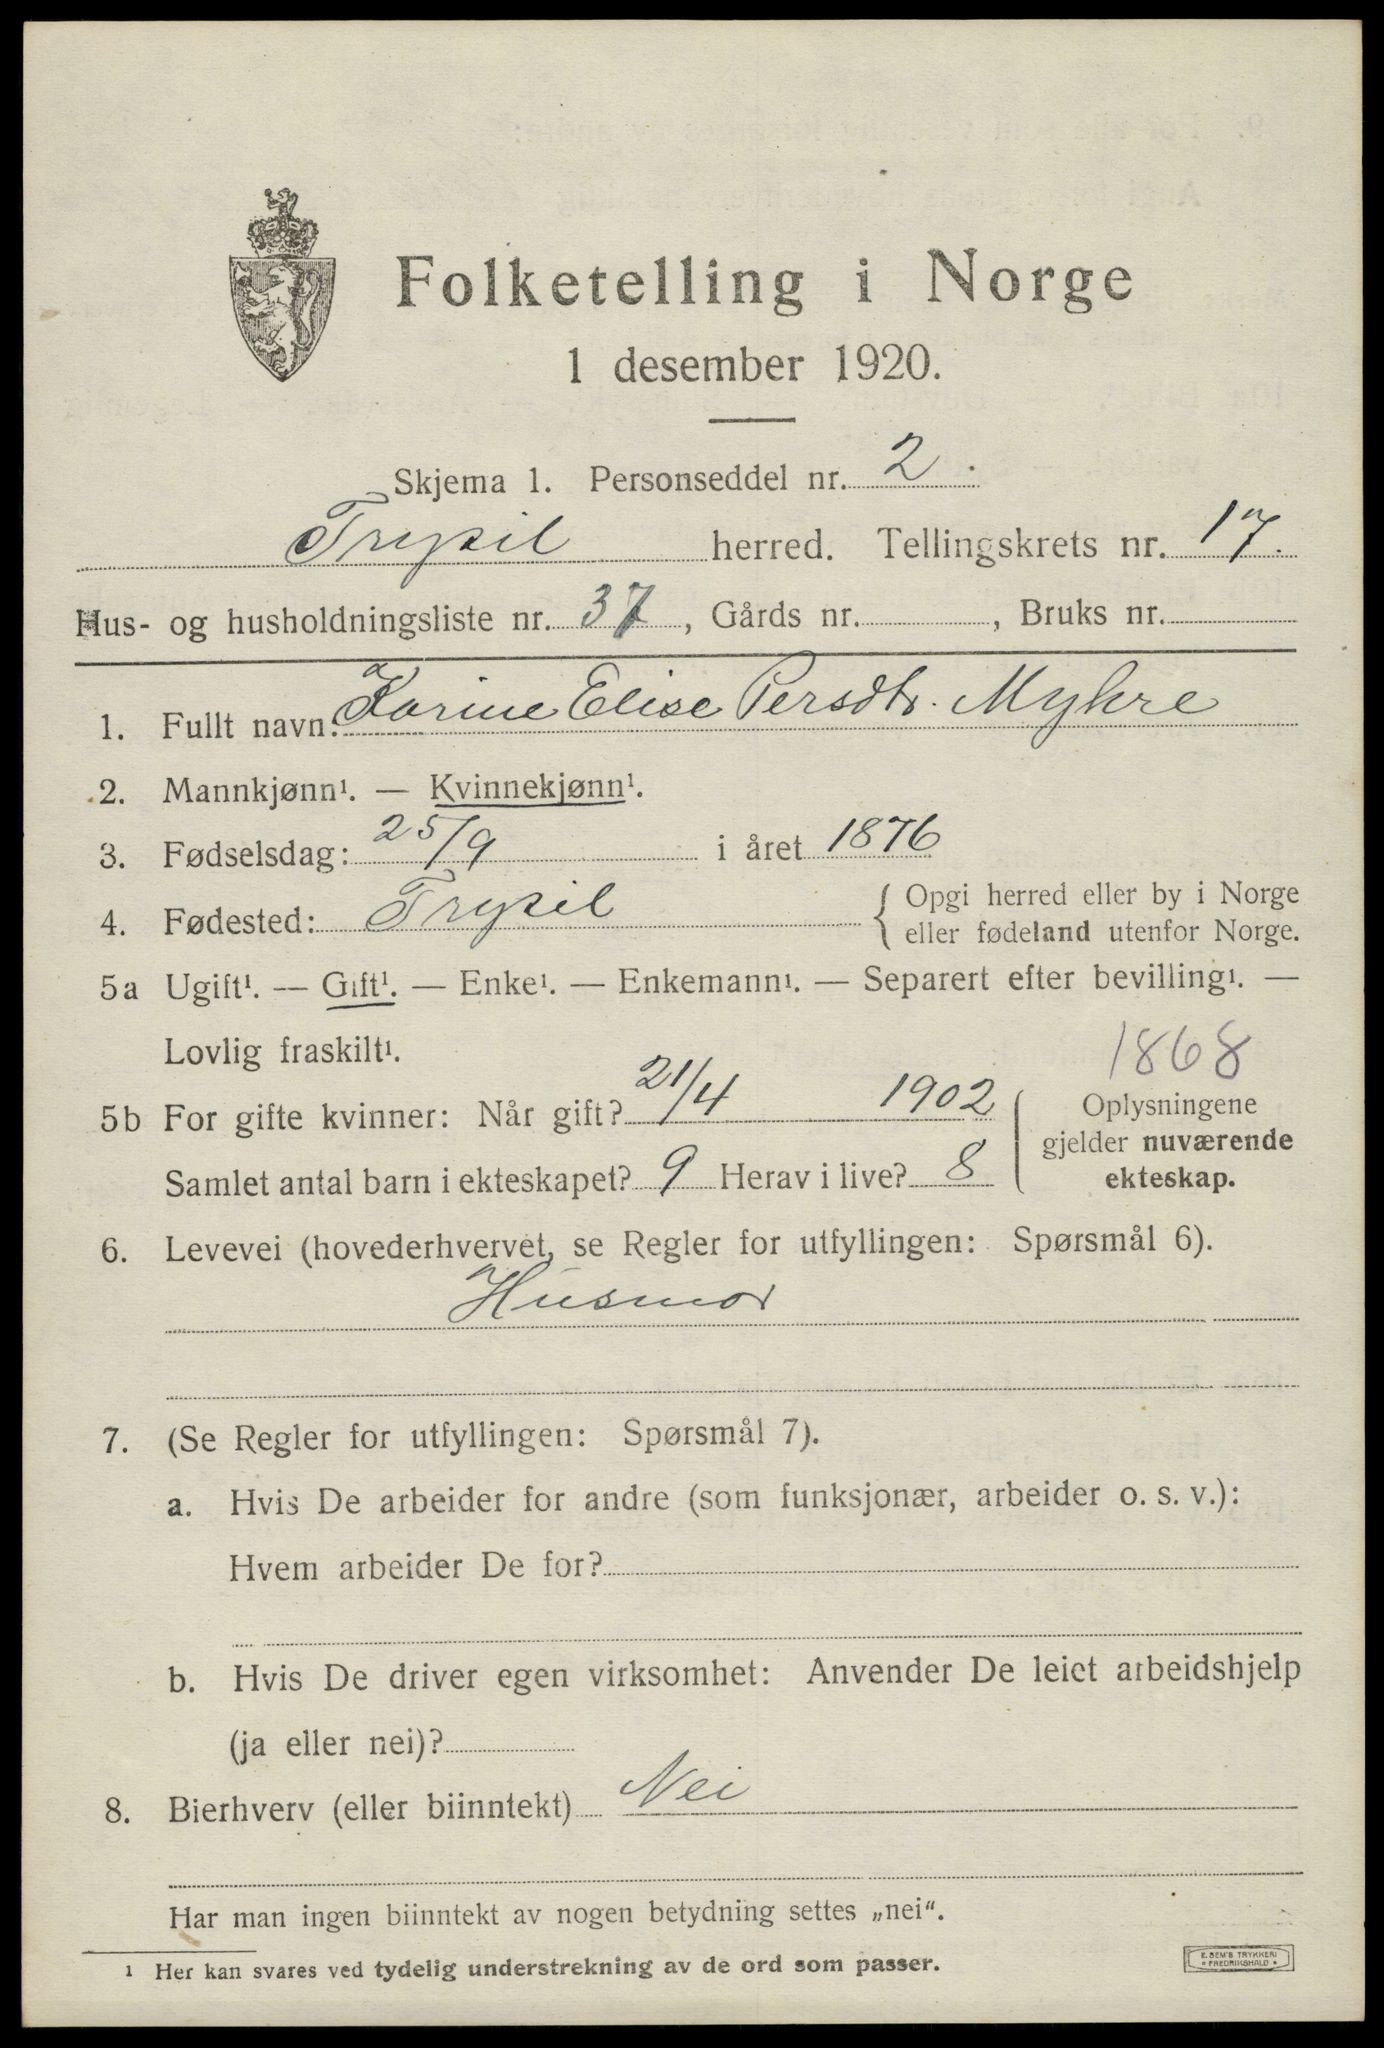 Folketelling i Norge
1 desember 1920.
Skjema 1. Personseddel nr. 2.
Trysil herred. Tellingskrets nr. 17.
Hus- og husholdningsliste nr. 37, Gårds nr. , Bruks nr.
1. Fullt navn: Karine Elise Persdtr. Myhre
2. Mannkjønn¹. — Kvinnekjønn¹.
3. Fødselsdag: 25/9 i året 1876
4. Fødested: Trysil { Opgi herred eller by i Norge
eller fødeland utenfor Norge.
5a Ugift¹. — Gift¹. — Enke¹. — Enkemann¹. — Separert efter bevilling¹. —
Lovlig fraskilt¹.
1868
5b For gifte kvinner: Når gift? 21/4 1902 { Oplysningene
gjelder nuværende
Samlet antal barn i ekteskapet? 9 Herav i live? 8 ekteskap.
6. Levevei (hovederhvervet, se Regler for utfyllingen: Spørsmål 6).
Husmor
7. (Se Regler for utfyllingen: Spørsmål 7).
a. Hvis De arbeider for andre (som funksjonær, arbeider o. s. v.):
Hvem arbeider De for?
b. Hvis De driver egen virksomhet: Anvender De leiet arbeidshjelp
(ja eller nei)?
8. Bierhverv (eller biinntekt) Nei
Har man ingen biinntekt av nogen betydning settes „nei“.
¹ Her kan svares ved tydelig understrekning av de ord som passer.
E. SEM'S TRYKKERI
* FREDRIKSHALD *